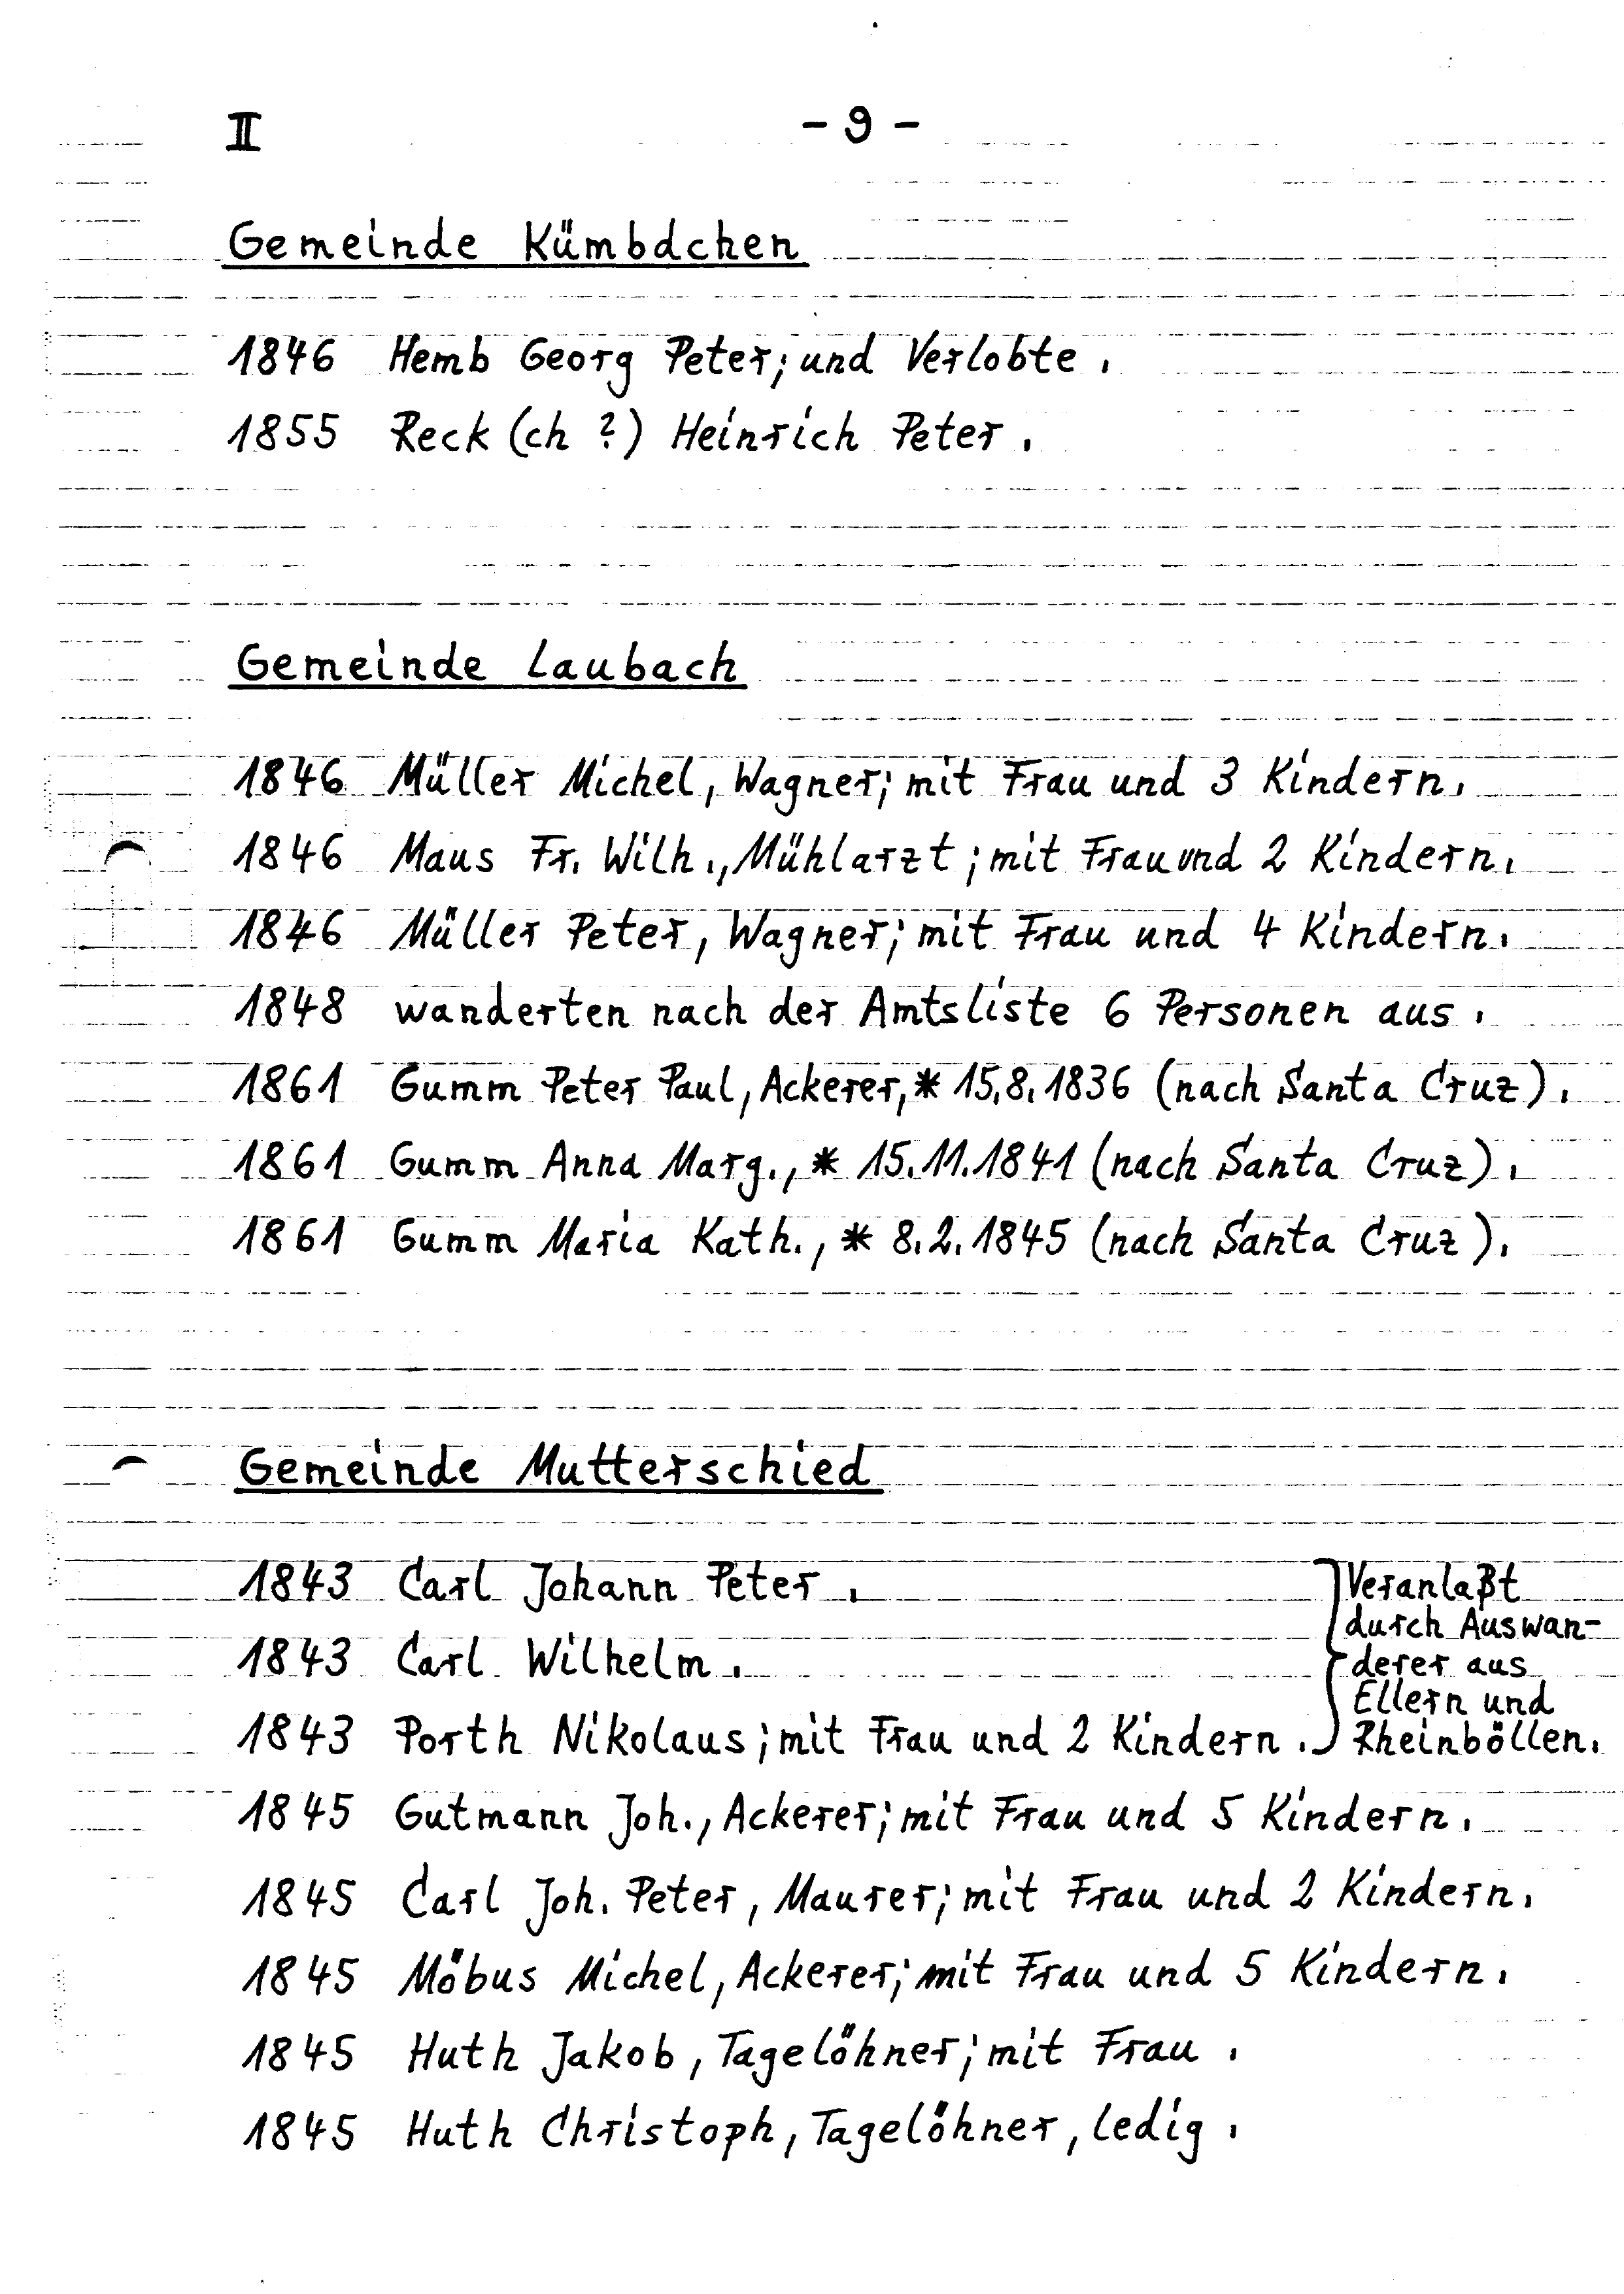 II
- 9 -
Gemeinde Kümbdchen
1846 Hemb Georg Peter; und Verlobte.
1855 Reck (ch ?) Heinrich Peter.
Gemeinde Laubach
1846 Müller Michel, Wagner; mit Frau und 3 Kindern.
1846 Maus Fr. Wilh., Mühlarzt; mit Frau und 2 Kindern.
1846 Müller Peter, Wagner; mit Frau und 4 Kindern.
1848 wanderten nach der Amtsliste 6 Personen aus.
1861 Gumm Peter Paul, Ackerer, * 15.8.1836 (nach Santa Cruz).
1861 Gumm Anna Marg., * 15.11.1841 (nach Santa Cruz).
1861 Gumm Maria Kath., * 8.2.1845 (nach Santa Cruz).
Gemeinde Mutterschied
1843 Carl Johann Peter.
1843 Carl Wilhelm.
1843 Porth Nikolaus; mit Frau und 2 Kindern.
Veranlaßt
durch Auswan-
derer aus
Ellern und
Rheinböllen.
1845 Gutmann Joh., Ackerer; mit Frau und 5 Kindern.
1845 Carl Joh. Peter, Maurer; mit Frau und 2 Kindern.
1845 Möbus Michel, Ackerer; mit Frau und 5 Kindern.
1845 Huth Jakob, Tagelöhner; mit Frau.
1845 Huth Christoph, Tagelöhner, ledig.